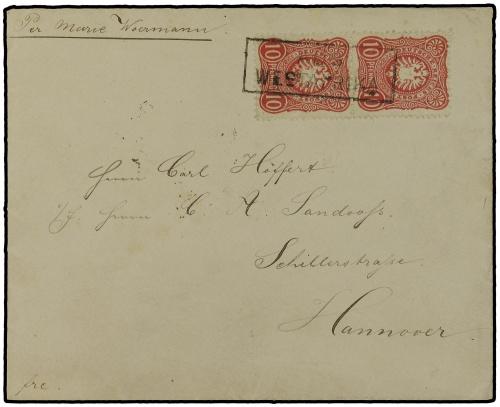 Per Marie Woermann
10 10
WESTAFRIKA
10 10
Herrn Carl Höffert
Herrn C. A. Sandvoss.
Schillerstraße.
Hannover
frc.